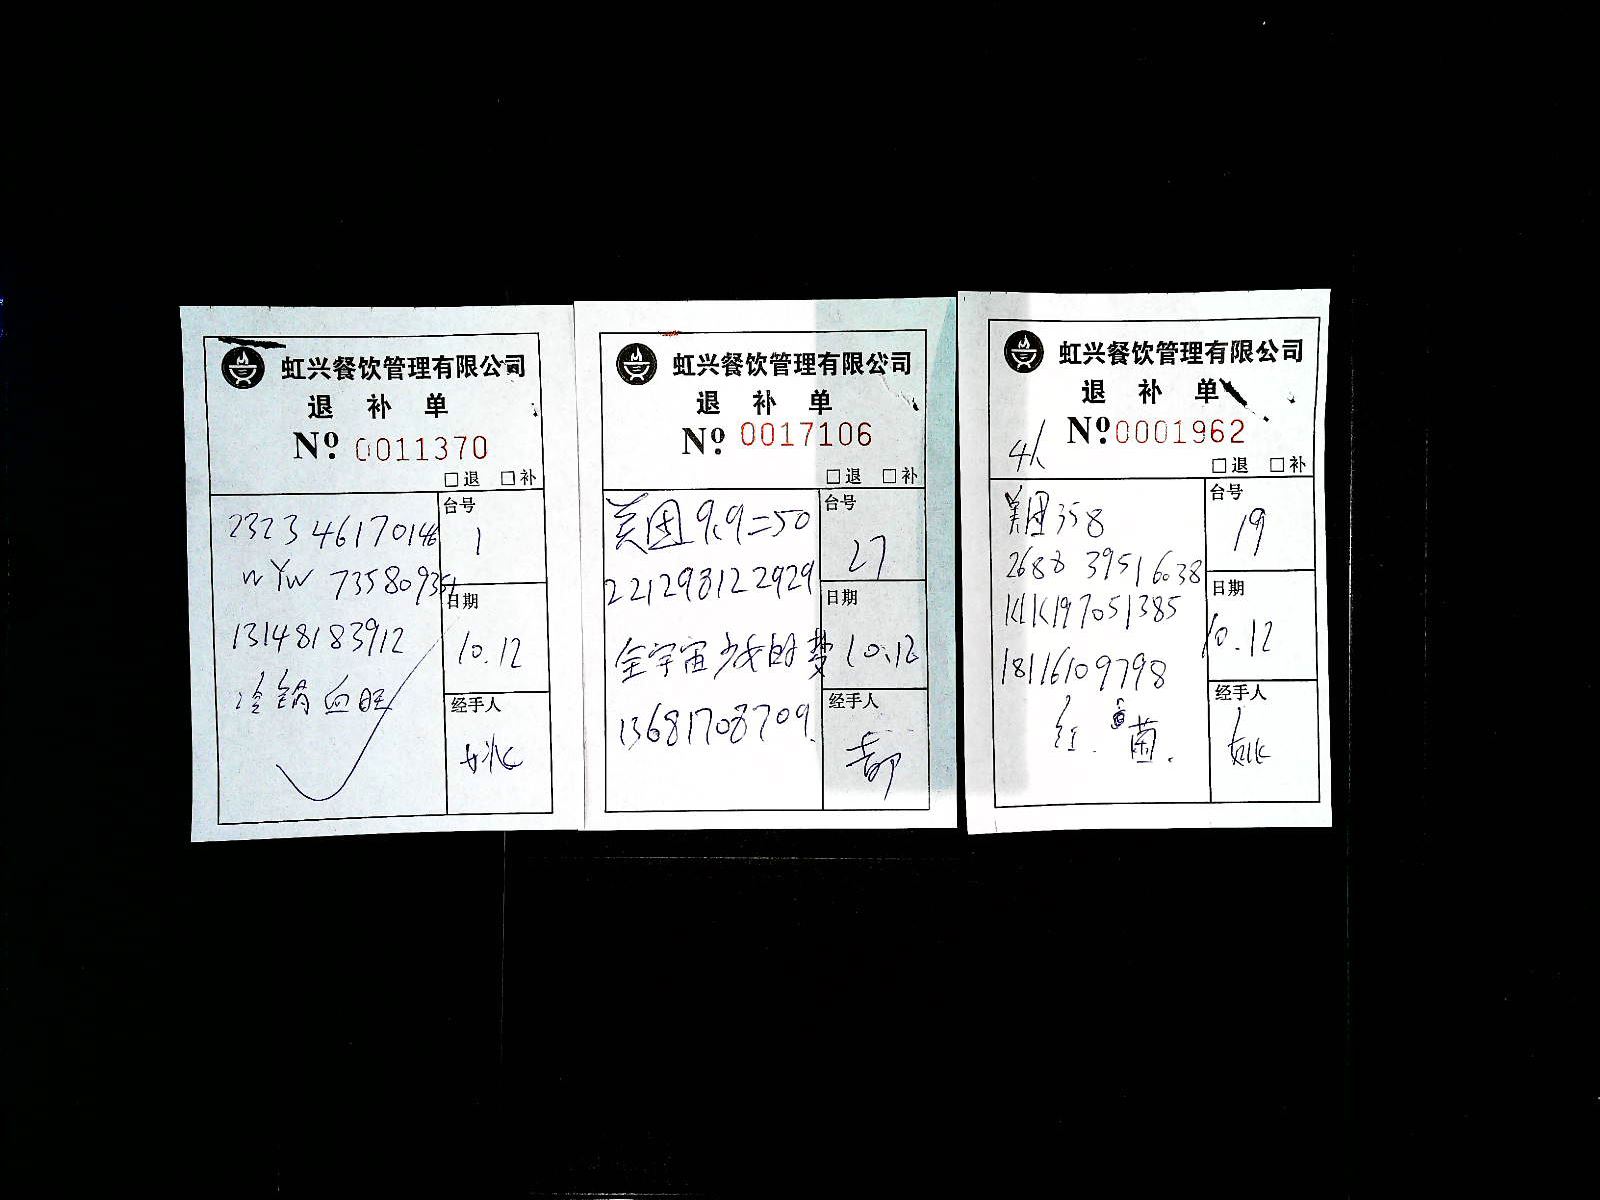 虹兴餐饮管理有限公司
退 补 单
Nº 0011370
□退 □补
台号
1
2323 46170146
wYw 735809354
13148183912
冷锅血旺
日期
10.12
经手人
姚
虹兴餐饮管理有限公司
退 补 单
Nº 0017106
□退 □补
台号
27
美团 9.9=50
221298122929
全宇宙少女的梦
13681708709.
日期
10.12
经手人
郝
虹兴餐饮管理有限公司
退 补 单
Nº 0001962
4人
□退 □补
台号
19
美团358
2688 39516038
KLK197051385
18116109798
红. 菌.
日期
10.12
经手人
姚